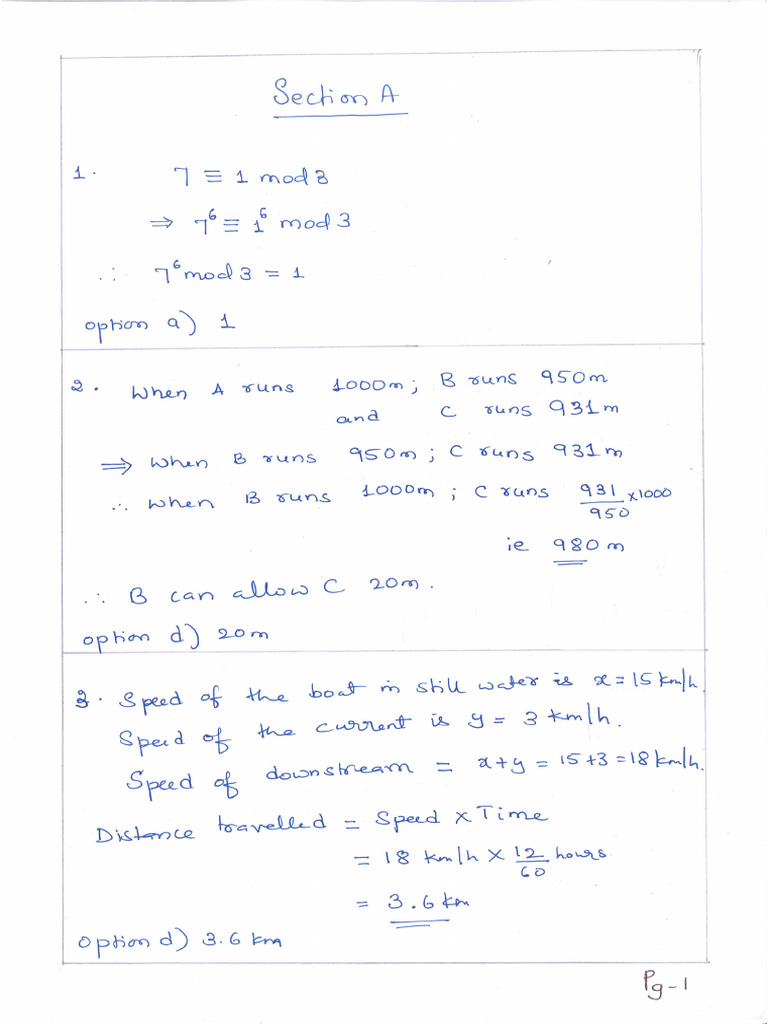 Section A
1. 7 ≡ 1 mod 3
⇒ 7⁶ ≡ 1⁶ mod 3
∴ 7⁶ mod 3 = 1
option a) 1
2. When A runs 1000m; B runs 950m
and C runs 931m
⇒ When B runs 950m; C runs 931m
∴ When B runs 1000m; C runs 931/950 x1000
ie 980m
∴ B can allow C 20m.
option d) 20m
3. Speed of the boat in still water is x = 15 km/h.
Speed of the current is y = 3 km/h.
Speed of downstream = x+y = 15+3 = 18 km/h.
Distance travelled = Speed x Time
= 18 km/h x 12/60 hours
= 3.6 km
Option d) 3.6 km
Pg-1